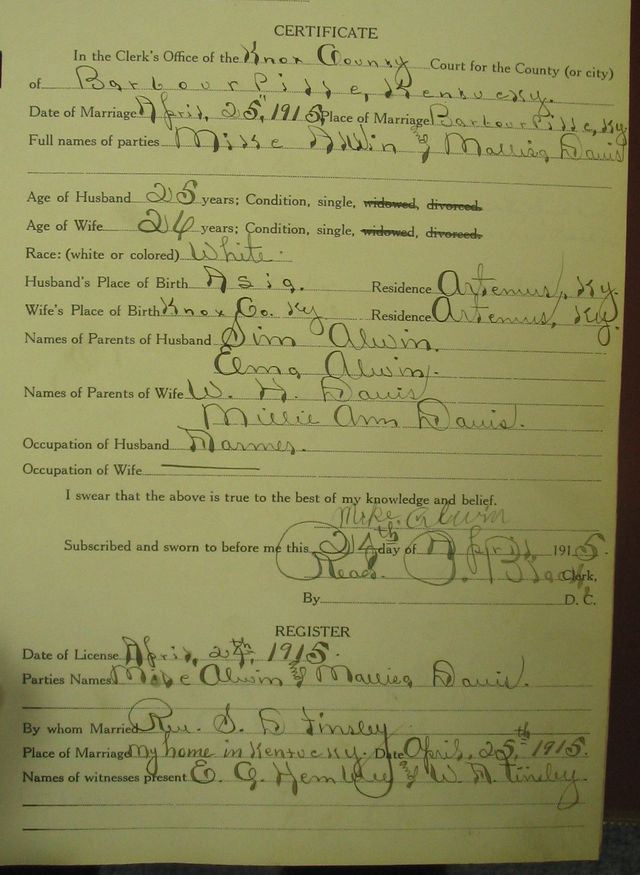 CERTIFICATE
In the Clerk's Office of the Knox County Court for the County (or city)
of Barbourville, Kentucky.
Date of Marriage April, 25, 1915, Place of Marriage Barbourville, Ky
Full names of parties Mike Alwin & Malliea Davis
Age of Husband 25 years; Condition, single, widowed, divorced.
Age of Wife 24 years; Condition, single, widowed, divorced.
Race: (white or colored) White.
Husband's Place of Birth Asia. Residence Artemus, Ky.
Wife's Place of Birth Knox Co. Ky Residence Artemus, Ky.
Names of Parents of Husband Sim Alwin.
Elma Alwin.
Names of Parents of Wife W. H. Davis
Millie Ann Davis.
Occupation of Husband Farmer.
Occupation of Wife
I swear that the above is true to the best of my knowledge and belief.
Mike. Alwin
Subscribed and sworn to before me this 24th day of April 1915.
Read. Black, Clerk,
By D. C.
REGISTER
Date of License April, 24th, 1915.
Parties Names Mike Alwin & Malliea Davis.
By whom Married Rev. S. D Tinsley
Place of Marriage My home in Kentucky. Date April, 25,th 1915.
Names of witnesses present E. G. & W. A Tinsley.